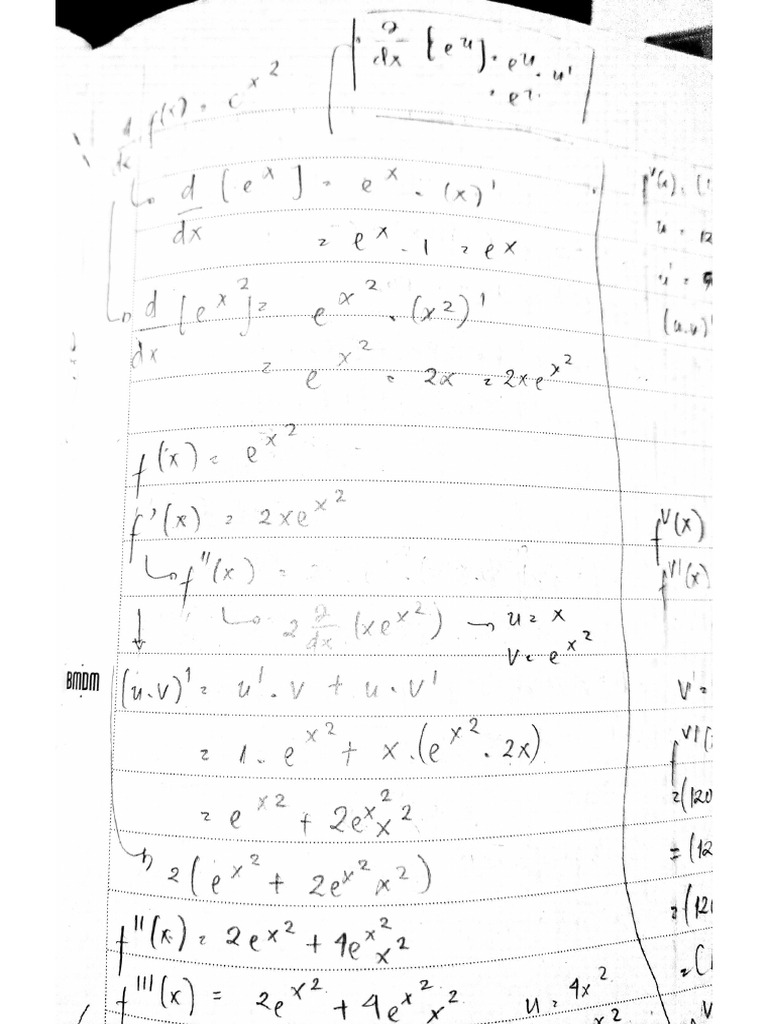 d/dx [e^u] = e^u · u'
d/dx f(x) = e^x^2
d/dx [e^x] = e^x · (x)'
= e^x · 1 = e^x
d/dx [e^x^2] = e^x^2 · (x^2)'
= e^x^2 · 2x = 2xe^x^2
f(x) = e^x^2
f'(x) = 2xe^x^2
f''(x) =
2 d/dx (xe^x^2) → u = x
v = e^x^2
BMDM
(u·v)' = u'·v + u·v'
= 1·e^x^2 + x·(e^x^2 · 2x)
= e^x^2 + 2e^x^2 x^2
2(e^x^2 + 2e^x^2 x^2)
f''(x) = 2e^x^2 + 4e^x^2 x^2
f'''(x) = 2e^x^2 + 4e^x^2 x^2 u = 4x^2
(u.v)'
f^V(x)
f^VI(x)
v' =
=(120
=(12
=(121